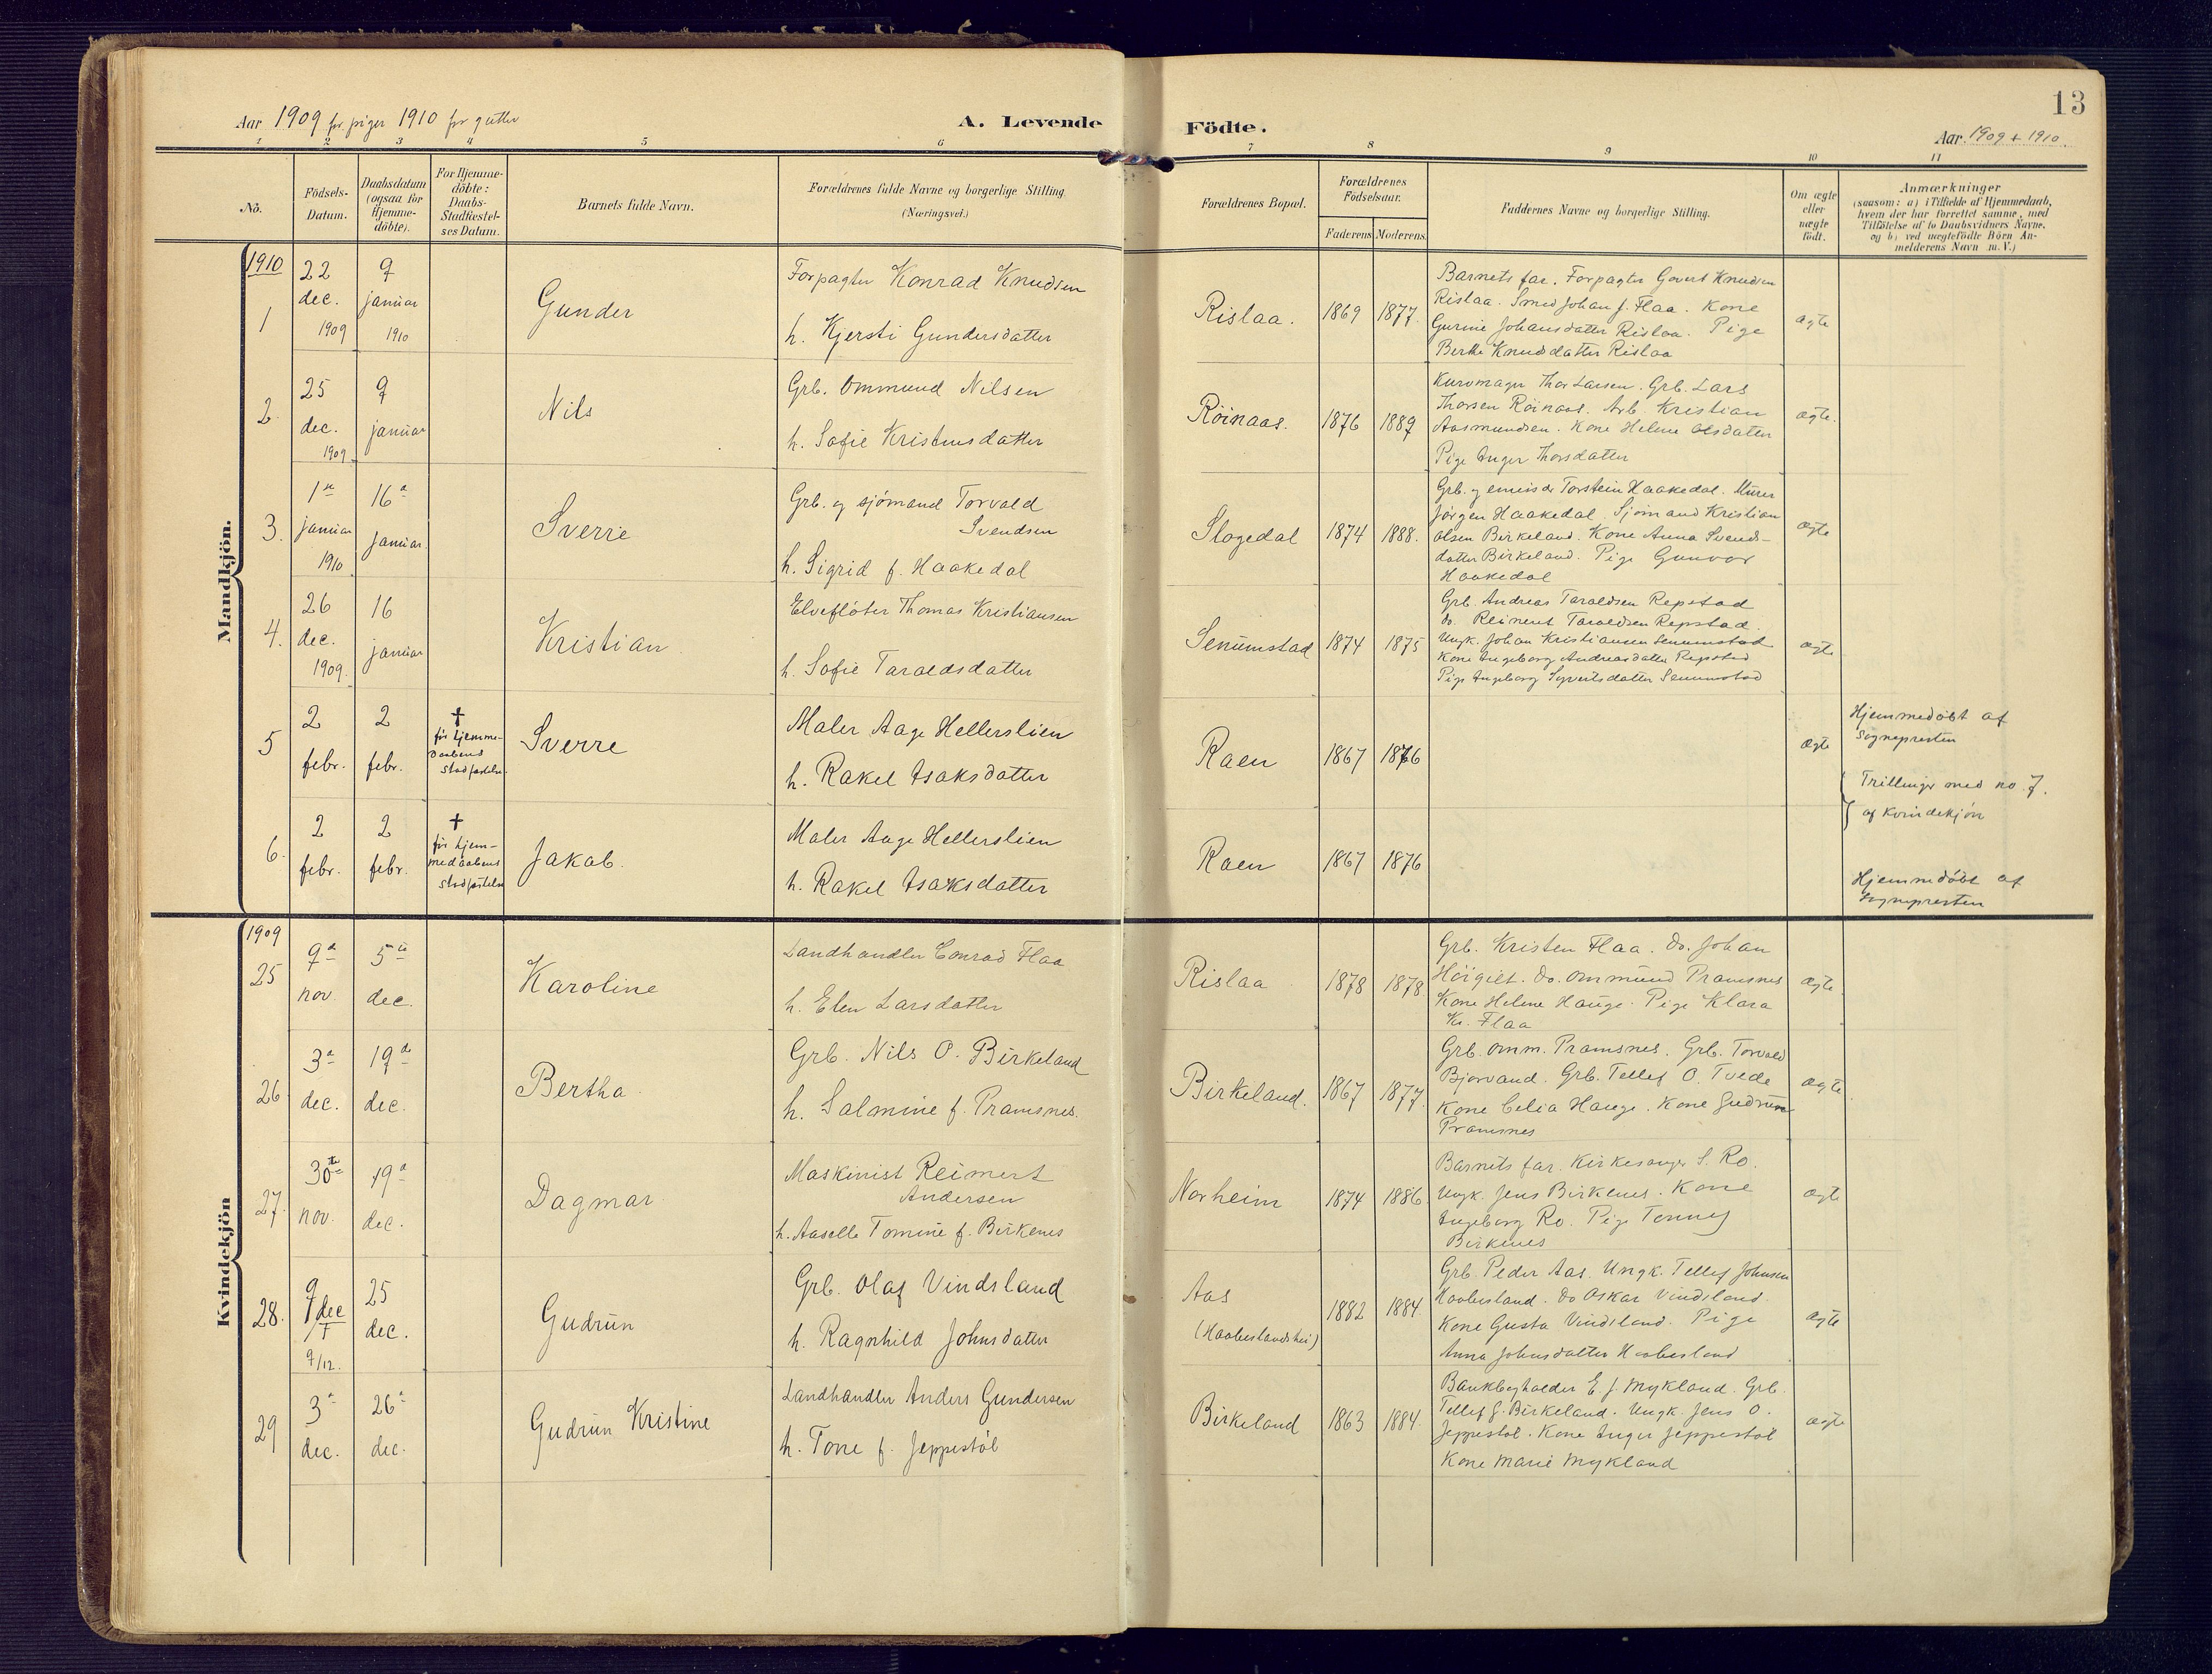 13
Aar 1909 for piger 1910 for gutter
A. Levende Födte.
Aar 1909 + 1910.
1 2 3 4 5 6 7 8 9 10 11
No.
Födsels-
Datum.
Daabsdatum
(ogsaa for
Hjemme-
döbte).
For Hjemme-
döbte:
Daabs-
Stadfæstel-
ses Datum.
Barnets fulde Navn.
Forældrenes fulde Navne og borgerlige Stilling.
(Næringsvei.)
Forældrenes Bopæl.
Forældrenes
Födselsaar.
Faderens Moderens
Faddernes Navne og borgerlige Stilling.
Om ægte
eller
uægte
födt.
Anmærkninger
(saasom: a) i Tilfælde af Hjemmedaab,
hvem der har forrettet samme, med
Tilföielse af to Daabsvidners Navne,
og b) ved uægtefödte Börn An-
melderens Navn m. V.)
Mandkjön.
1910
1
22
dec.
1909
9
januar
1910
Gunder
Forpagter Konrad Knudsen
h. Kjersti Gundersdatter
Rislaa.
1869
1877.
Barnets far. Forpagter Govert Knudsen
Rislaa. Smed Johan J. Flaa. Kone
Gurine Johansdatter Rislaa. Pige
Berthe Knudsdatter Rislaa
ægte
2.
25
dec.
1909
9
januar
Nils
Grb. Ommund Nilsen
h. Sofie Kristensdatter
Röinaas.
1876
1889
Kurvmager Thor Larsen. Grb. Lars
Thorsen Röinaas. Arb. Kristian
Aasmundsen. Kone Helene Olsdatter
Pige Inger Thorsdatter
ægte.
3.
1ste
januar
1910
16de
januar.
Sverre
Grb. og sjömand Torvald
Svendsen
h. Sigrid f. Haakedal
Slogedal
1874
1888.
Grb. og emissær Torstein Haakedal. Murer
Jörgen Haakedal. Sjömand Kristian
Olsen Birkeland. Kone Anna Svends-
datter Birkeland. Pige Gunvor
Haakedal
ægte
4.
26
dec.
1909.
16
januar
Kristian
Elveflöter Thomas Kristiansen
h. Sofie Taraldsdatter
Senumstad
1874
1875
Grb. Andreas Taraldsen Repstad
do. Reinert Taraldsen Repstad.
Ungk. Johan Kristiansen Senumstad
Kone Ingeborg Andreasdatter Repstad
Pige Ingeborg Syvertsdatter Senumstad
ægte
5
2
febr.
2
febr.
†
för hjemme-
daabens
stadfæstelse.
Sverre
Maler Aage Hellerslien
h. Rakel Isaksdatter
Raen
1867
1876
ægte
Hjemmedöbt af
Sognepresten
Trillinger med no. 7.
af kvindekjön
6.
2
febr.
2
febr.
†
för hjem-
medaabens
stadfæstelse
Jakob.
Maler Aage Hellerslien
h. Rakel Isaksdatter
Raen
1867
1876
Hjemmedöbt af
Sognepresten
Kvindekjön
1909
25
9de
nov.
5te
dec.
Karoline
Landhandler Conrad Flaa
h. Elen Larsdatter
Rislaa
1878
1878
Grb. Kristen Flaa. Do. Johan
Höigilt. Do. Ommund Pramsnes
Kone Helene Hauge. Pige Klara
Kr. Flaa
ægte.
26
3de
dec.
19de
dec.
Bertha
Grb. Nils O. Birkeland
h. Salmine f. Pramsnes.
Birkeland.
1867
1877.
Grb. Omm. Pramsnes. Grb. Torvald
Bjorvand. Grb. Tellef O. Tvede
Kone Celia Hauge. Kone Gudrun
Pramsnes
ægte
27.
30te
nov.
19de
dec.
Dagmar
Maskinist Reimert
Andersen
h. Aaselle Tomine f. Birkenes
Norheim
1874
1886
Barnets far. Kirkesanger S. Ro.
Ungk. Jens Birkenes. Kone
Ingeborg Ro. Pige Tonny
Birkenes
ægte
28.
9
dec
†
9/12.
25
dec.
Gudrun
Grb. Olaf Vindsland
h. Ragnhild Johnsdatter
Aas
(Haabeslandshei)
1882
1884.
Grb. Peder Aas. Ungk. Tellef Johnsen
Haabesland. Do Oskar Vindsland.
Kone Gusta Vindsland. Pige
Anna Johnsdatter Haabesland
ægte
29
3de
dec.
26de
dec.
Gudrun Kristine
Landhandler Anders Gundersen
h. Tone f. Jeppestöl
Birkeland
1863
1884.
Bankbogholder E. J. Mykland. Grb.
Tellef G. Birkeland. Ungk. Jens O.
Jeppestöl. Kone Inger Jeppestöl
Kone Marie Mykland
ægte